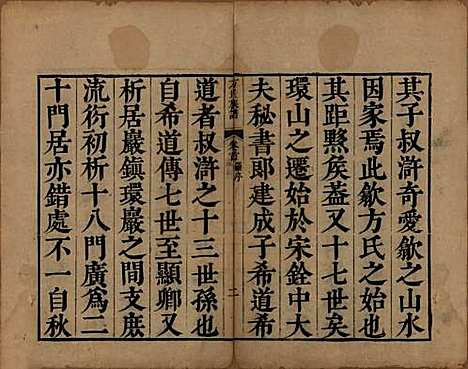 其子叔滸奇愛歙之山水
因家焉此歙方氏之始也
其距黟矦蓋又十七世矣
環山之遷始於宋銓中大
夫秘書郞建成子希道希
方氏族譜
卷首
序
二
道者叔滸之十三世孫也
自希道傳七世至顯卿又
析居巖鎮環巖之間支庻
流衍初析十八門廣爲二
十門居亦錯處不一自秋